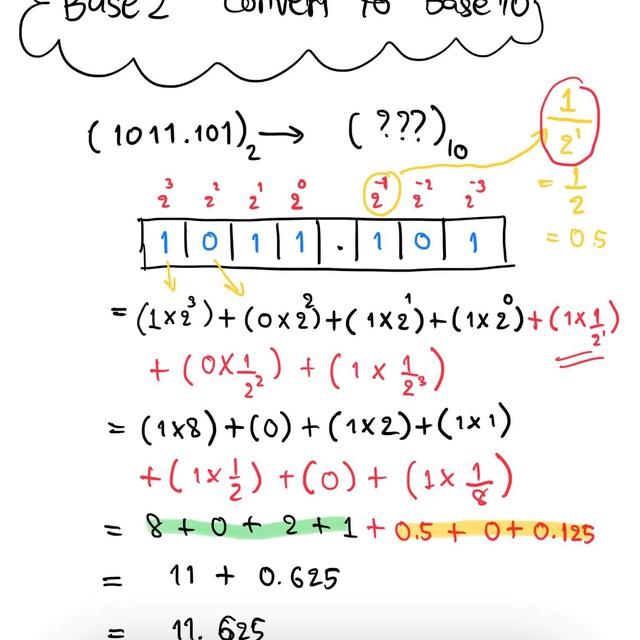 Base 2 Convert to Base 10
(1011.101)₂ → (???)₁₀
1/2¹
= 1/2
= 0.5
2³ 2² 2¹ 2⁰ 2⁻¹ 2⁻² 2⁻³
1 0 1 1 . 1 0 1
= (1×2³) + (0×2²) + (1×2¹) + (1×2⁰) + (1×1/2¹)
+ (0×1/2²) + (1×1/2³)
= (1×8) + (0) + (1×2) + (1×1)
+ (1×1/2) + (0) + (1×1/8)
= 8 + 0 + 2 + 1 + 0.5 + 0 + 0.125
= 11 + 0.625
= 11.625